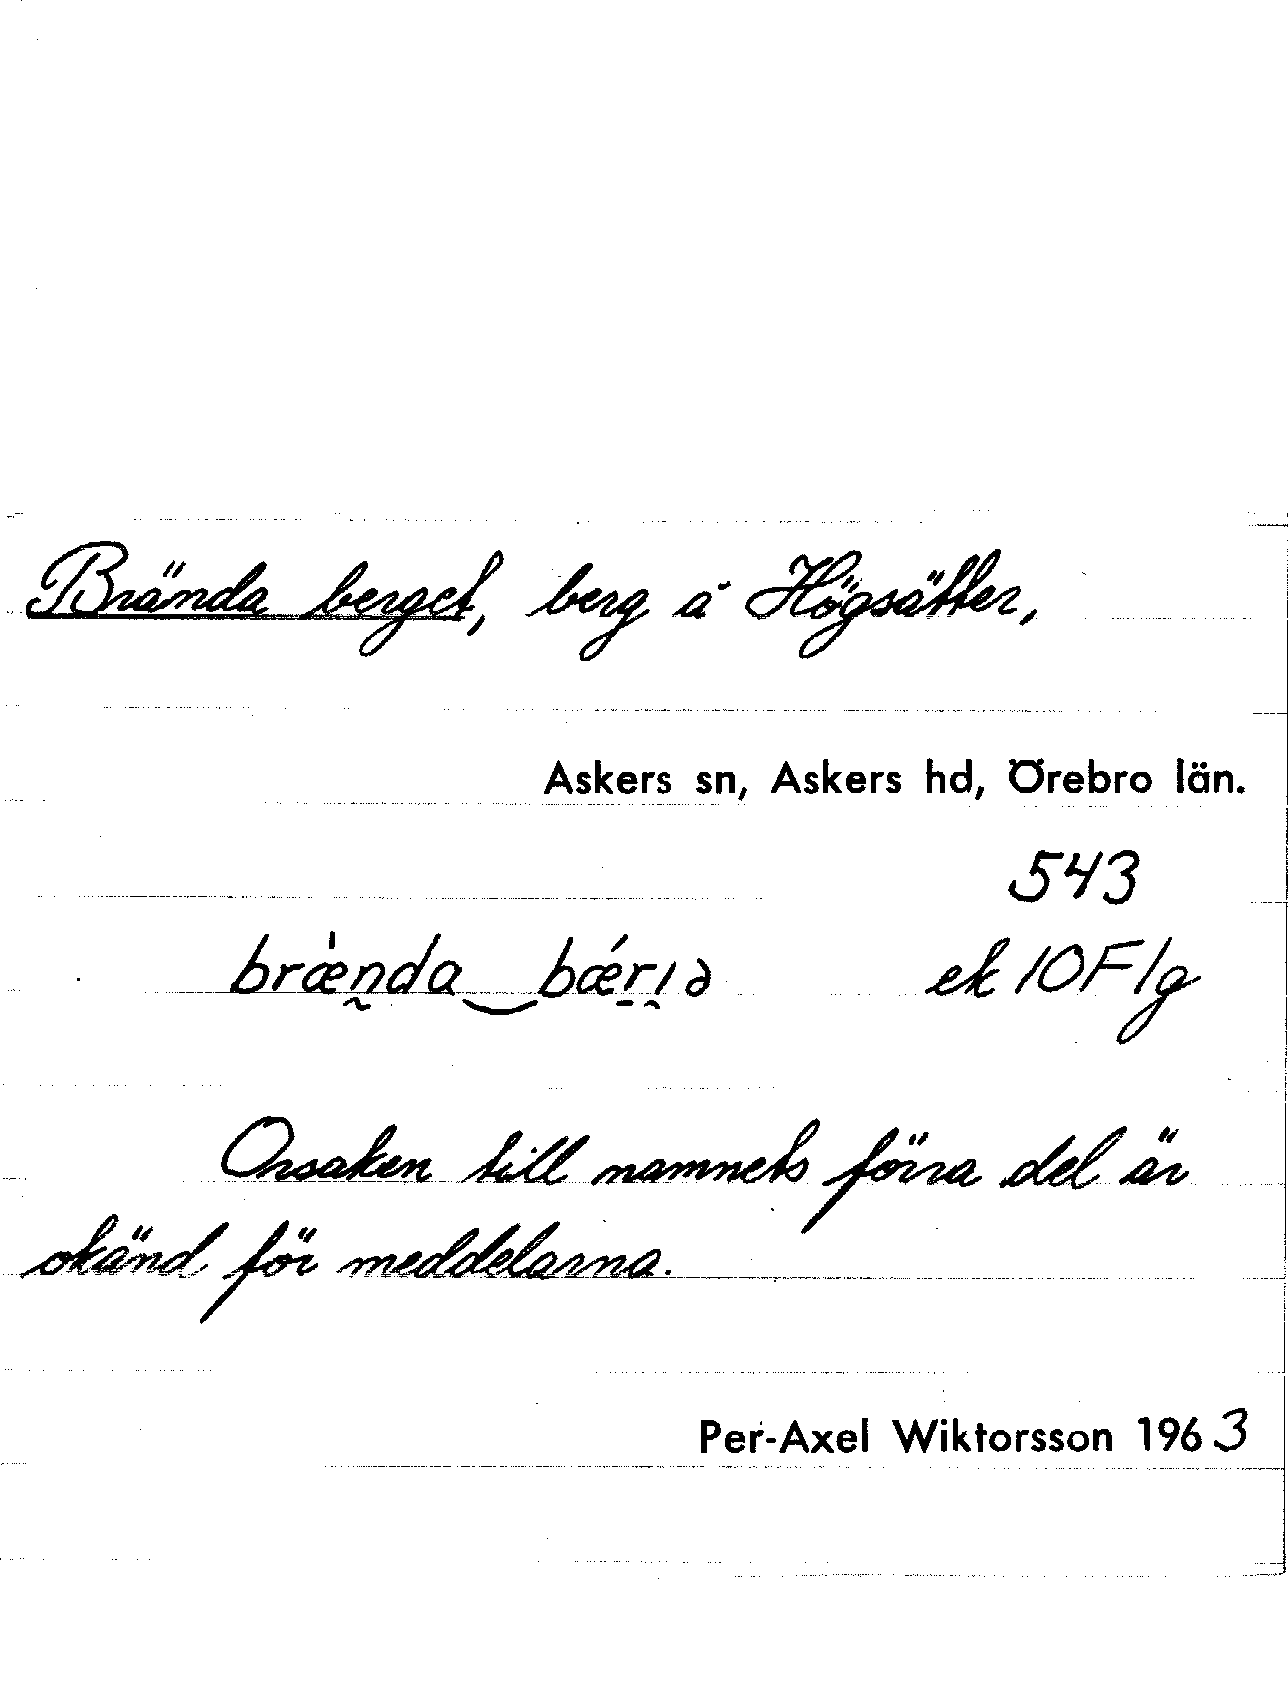 Brända berget, berg å Högsätter,
Askers sn, Askers hd, Örebro län.
543
bræ̀n̰da‿bǽr̠ı̯ə ek 10F/g
Orsaken till namnets förra del är
okänd för meddelarna.
Per-Axel Wiktorsson 1963